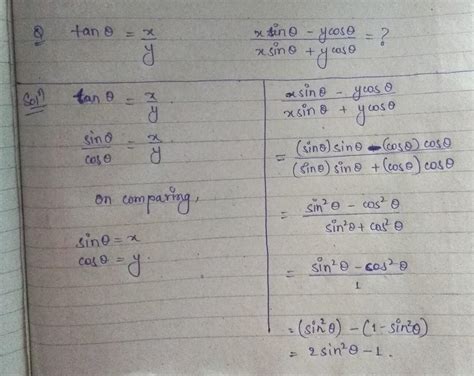 Q tanθ = x/y    (x sinθ - y cosθ)/(x sinθ + y cosθ) = ?
Solⁿ tanθ = x/y.
sinθ/cosθ = x/y
On comparing,
sinθ = x
cosθ = y.
(x sinθ - y cosθ)/(x sinθ + y cosθ)
= ((sinθ) sinθ - (cosθ) cosθ)/((sinθ) sinθ + (cosθ) cosθ)
= (sin²θ - cos²θ)/(sin²θ + cos²θ)
= (sin²θ - cos²θ)/1
= (sin²θ) - (1 - sin²θ)
= 2 sin²θ - 1.